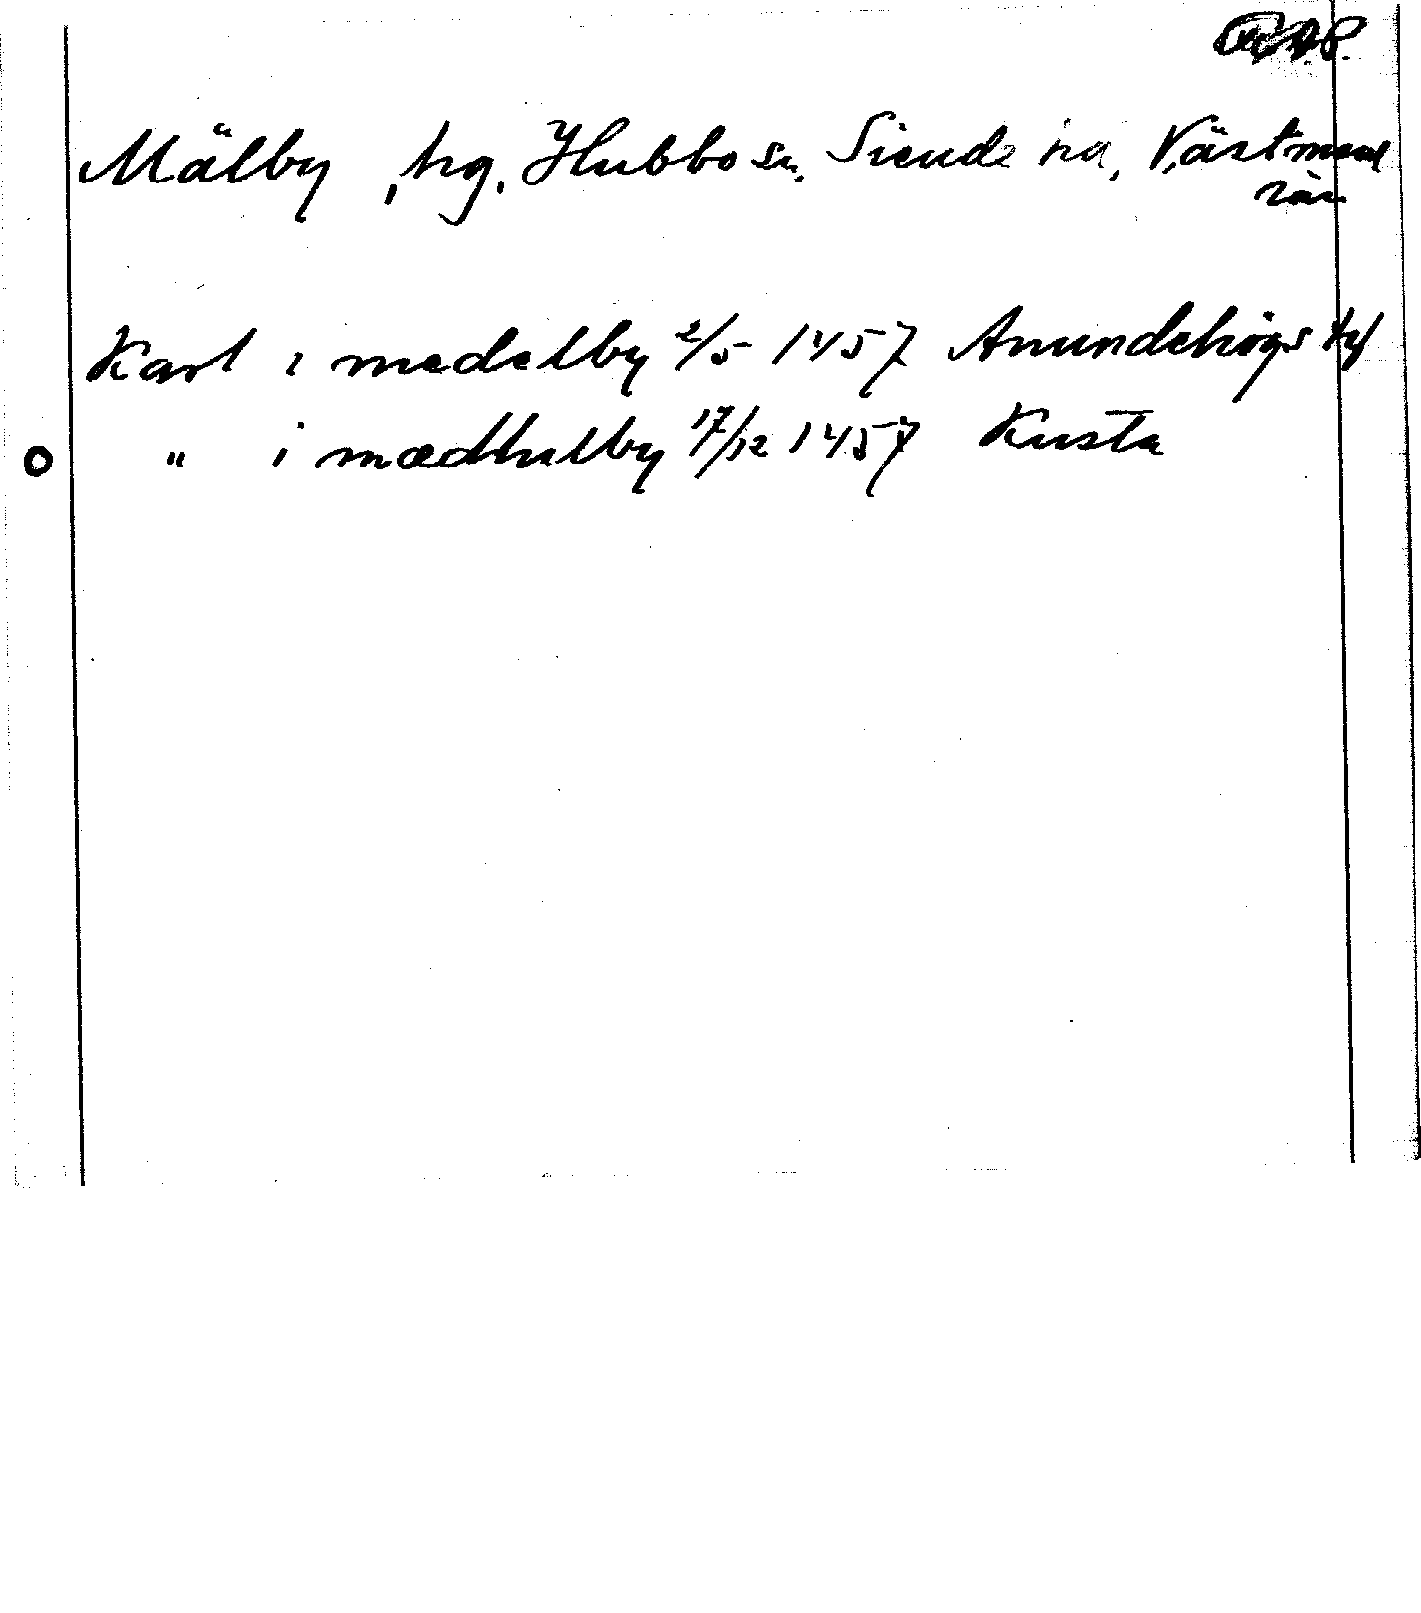 Mälby, hg. Hubbo sn, Siende hd, Västman
län
Karl i medelby 2/5 1457 Anundehögs
" i mædhelby 17/12 1457 Kusta